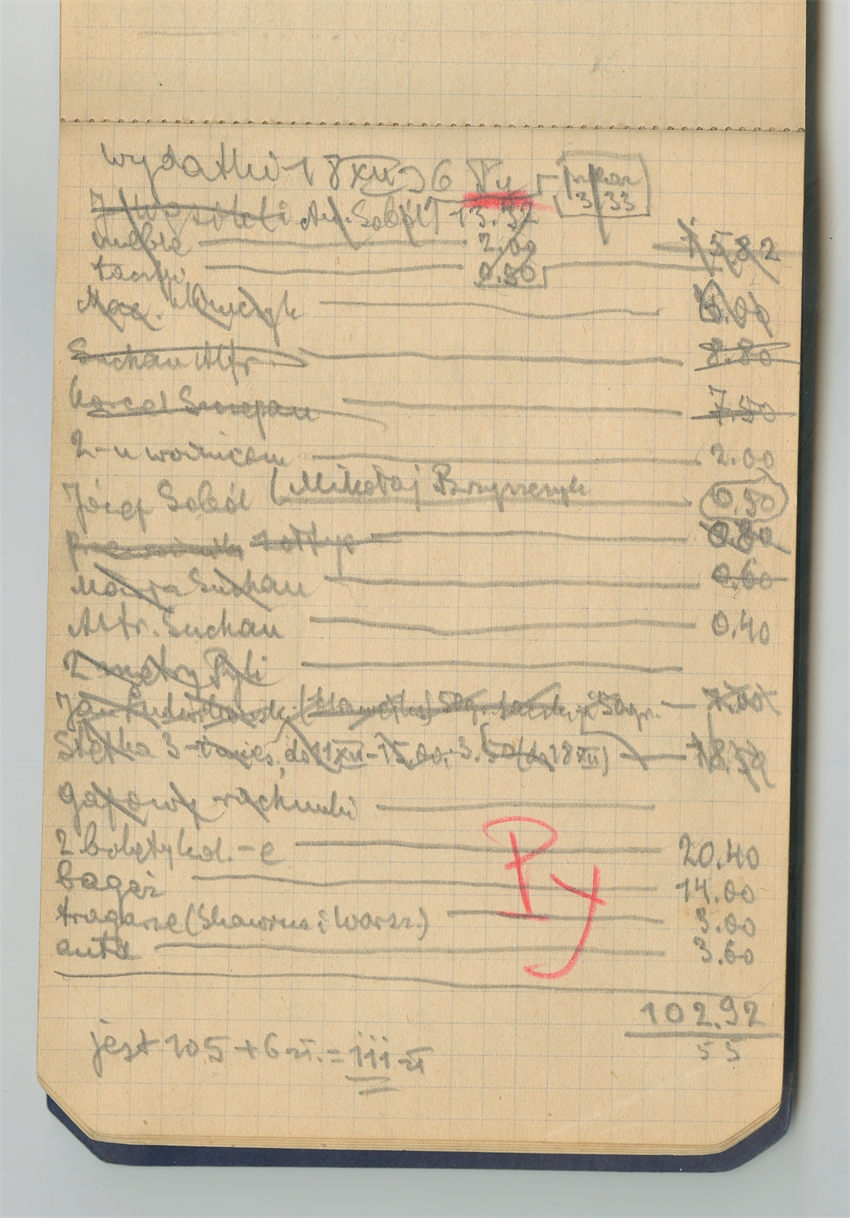 wydatki 18 XII 36 Py
3/33
Ant. Soból 13.32
meble 2.00 15.82
0.50
6.00
Suchan Alfr 8.80
Karol Szczepan 7.50
2-u woźnicom 2.00
Józef Soból (Mikołaj 0.50
żółtye 0.80
Marja Suchan 0.60
Alfr. Suchan 0.40
2 metry Pyli
Jan 50gr. i 50gr. 7.00
Stefka 3 do 11 XII - 15.00, 3.50 (do 18 XII) 18.50
gazowe rachunki
2 bilety kol.-e 20.40
bagaż 14.00
tragarze (Skawina i Warsz.) 3.00
auta 3.60
Py
102.92
55
jest 105 + 6 zł. = 111 zł